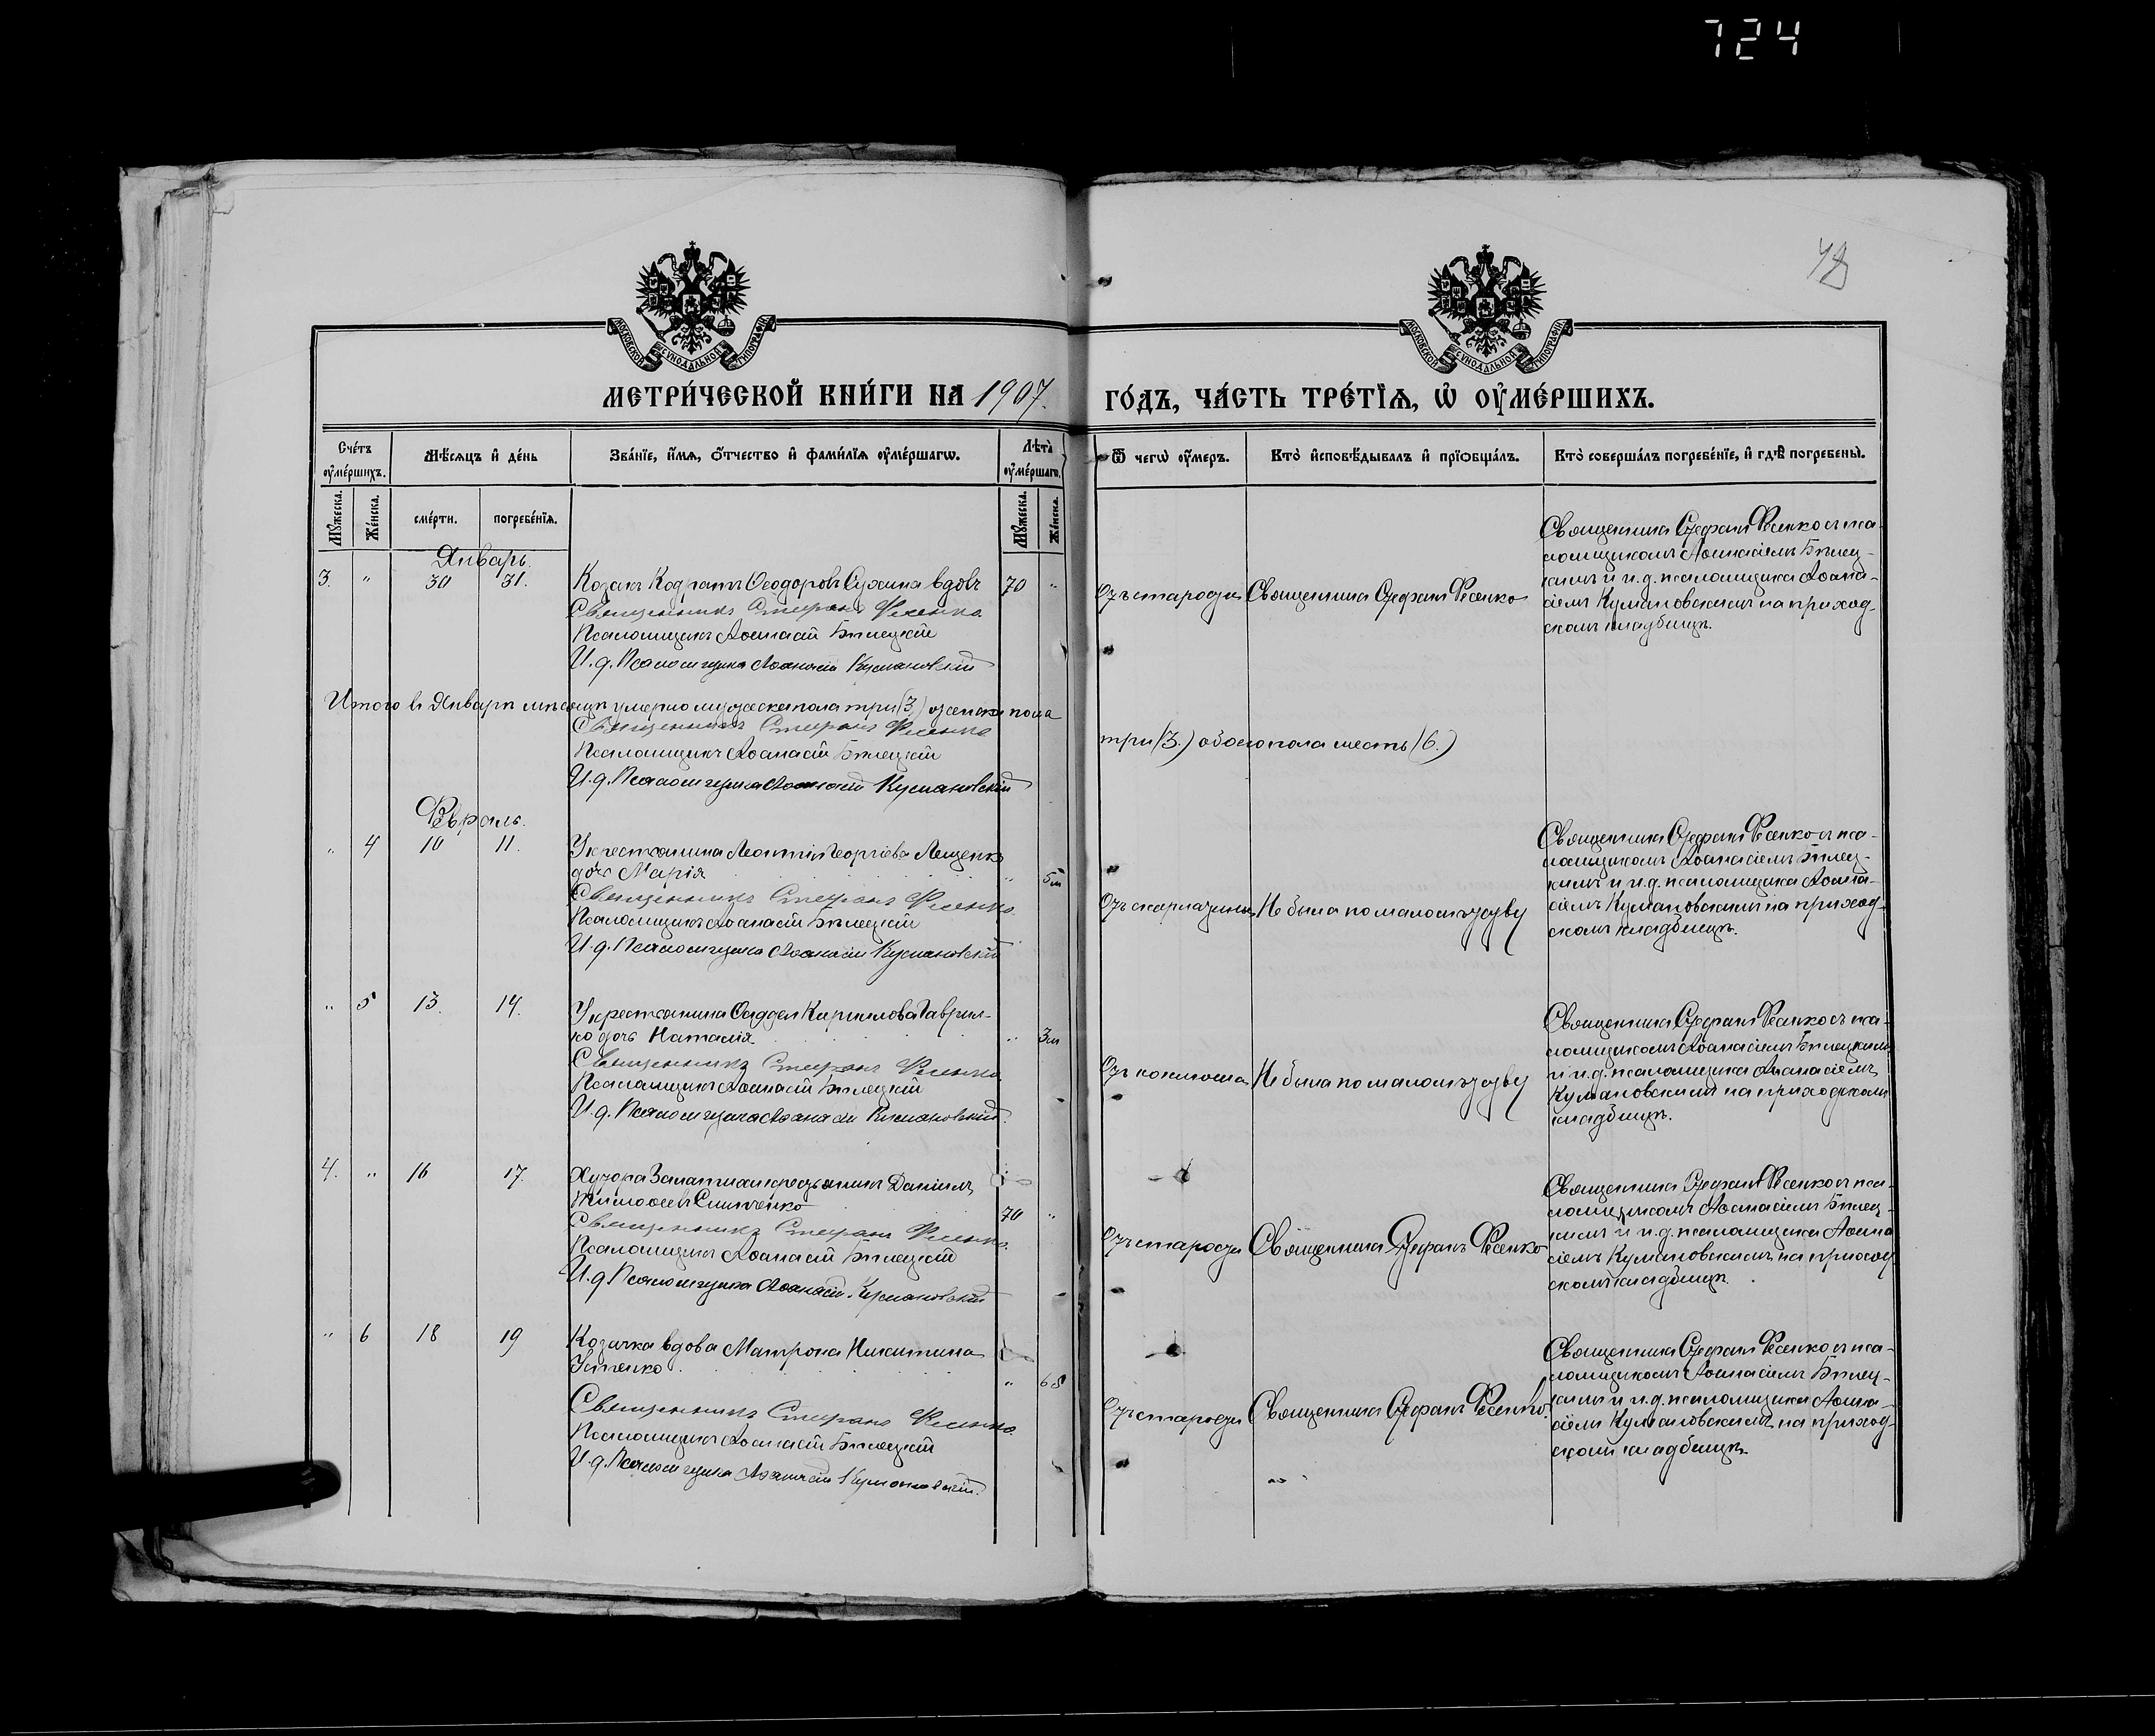 724
48
МОСКОВСКОЙ СѴНОДАЛЬНОЙ ТИПОГРАФІИ
МОСКОВСКОЙ СѴНОДАЛЬНОЙ ТИПОГРАФІИ
МЕТРИ́ЧЕСКОЙ КНИ́ГИ НА 1907. ГО́ДЪ, ЧА́СТЬ ТРЕ́ТІѦ, Ѡ҆ ОУ҆МЕ́РШИХЪ.
Сче́тъ оу҆ме́ршихъ.
Мѣ́сяцъ и҆ де́нь
Зва́нїе, и҆́мѧ, ѻ҆́тчество и҆ фами́лїѧ оу҆ме́ршагѡ.
Лѣ́та оу҆ме́ршагѡ.
Ѿ чегѡ̀ оу҆́меръ.
Кто̀ и҆сповѣ́дывалъ и҆ прїѡбща́лъ.
Кто̀ соверша́лъ погребе́нїе, и҆ гдѣ̀ погребены̀.
Мꙋ́жеска.
Же́нска.
сме́рти.
погребе́нїѧ.
Мꙋ́жеска.
Же́нска.
Январь.
3. " 30 31. Козакъ Кодратъ Ѳеодоровъ Сухина вдовъ 70 "
Священникъ Стефанъ Фесенко
Псаломщикъ Аѳанасій Бѣлецкій
И. д. Псаломщика Аѳанасій Кумановскій
Отъ старости
Священникъ Стефанъ Фесенко
Священникъ Стефанъ Фесенко съ пса-
ломщикомъ Аѳанасіемъ Бѣлец-
кимъ и и. д. псаломщика Аѳана-
сіемъ Кумановскимъ на приход-
скомъ кладбищѣ.
Итого въ Январѣ мѣсяцѣ умерло мужеска пола три (3) женска пола
три (3.) обоего пола шесть (6.)
Священникъ Стефанъ Фесенко
Псаломщикъ Аѳанасій Бѣлецкій
И. д. Псаломщика Аѳанасій Кумановскій
Февраль.
" 4 10 11. У крестьянина Леонтія Георгіева Лещенко
дочь Марія " 5м
Священникъ Стефанъ Фесенко
Псаломщикъ Аѳанасій Бѣлецкій
И. д. Псаломщика Аѳанасій Кумановскій
Отъ скарлатины
Не была по малолѣтству
Священникъ Стефанъ Фесенко съ пса-
ломщикомъ Аѳанасіемъ Бѣлец-
кимъ и и. д. псаломщика Аѳана-
сіемъ Кумановскимъ на приход-
скомъ кладбищѣ.
" 5 13. 14. У крестьянина Ѳаддея Кириллова Гаврил-
ко дочь Наталія " 3м
Священникъ Стефанъ Фесенко
Псаломщикъ Аѳанасій Бѣлецкій
И. д. Псаломщика Аѳанасій Кумановскій.
Отъ коклюша
Не была по малолѣтству
Священникъ Стефанъ Фесенко съ пса-
ломщикомъ Аѳанасіемъ Бѣлецкимъ
и и. д. псаломщика Аѳанасіемъ
Кумановскимъ на приходскомъ
кладбищѣ.
4. " 16 17. Хутора крестьянинъ Даніилъ
Тимоѳеевъ 70 "
Священникъ Стефанъ Фесенко
Псаломщикъ Аѳанасій Бѣлецкій
И. д. Псаломщика Аѳанасій Кумановскій
Отъ старости
Священникъ Стефанъ Фесенко
Священникъ Стефанъ Фесенко съ пса-
ломщикомъ Аѳанасіемъ Бѣлец-
кимъ и и. д. псаломщика Аѳана
сіемъ Кумановскимъ на приход
скомъ кладбищѣ.
" 6 18 19 Козачка вдова Матрона Никитина
Устенко " 68
Священникъ Стефанъ Фесенко
Псаломщикъ Аѳанасій Бѣлецкій
И. д. Псаломщика Аѳанасій Кумановскій.
Отъ старости
Священникъ Стефанъ Фесенко.
Священникъ Стефанъ Фесенко съ пса-
ломщикомъ Аѳанасіемъ Бѣлец-
кимъ и и. д. псаломщика Аѳана-
сіемъ Кумановскимъ на приход-
скомъ кладбищѣ.